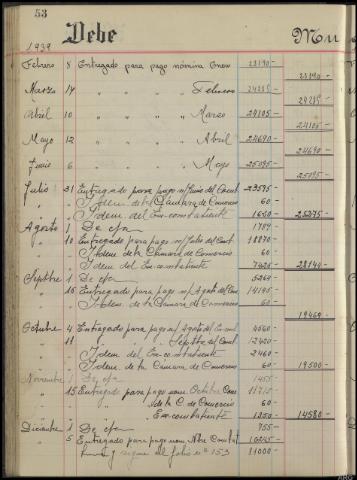 53
Debe Mu
1939
Febrero 8 Entregado para pago nómina Enero 23190-
23190-
Marzo 14 " " " " Febrero 24285-
24285-
Abril 10 " " " " Marzo 24105-
24105-
Mayo 12 " " " " Abril 24690-
24690-
Junio 6 " " " " Mayo 25095-
25095-
Julio 31 Entregado para pago n/ Junio del 23595-
" Idem de la Cámara de Comercio 60-
" Idem del Ex-combatiente 1620- 25275-
Agosto 1 De 
10 Entregado para pago n/ Julio del 18870-
" Idem de la Cámara de Comercio 60-
" Idem del Ex-combatiente 28140-
Septbre 1 De 
15 Entregado para pago n/ Agosto del 14145-
" Idem de la Cámara de Comercio 60-
19469-
Octubre 4 Entregado para pago n/ Agosto del 4560-
" 11 " " " " Septbre del 12420-
" Idem del Ex-combatiente 2460-
" Idem de la Cámara de Comercio 60- 19500-
Noviembre 1 De 1455-
15 Entregado para pago nom Octubre
" Id de la C de Comercio 60-
" Ex-combatiente 1350- 14580-
Diciembre 1 De 755-
" 5 Entregado para pago nom Nbre 10245-
y sigue al folio nº 153 11000-